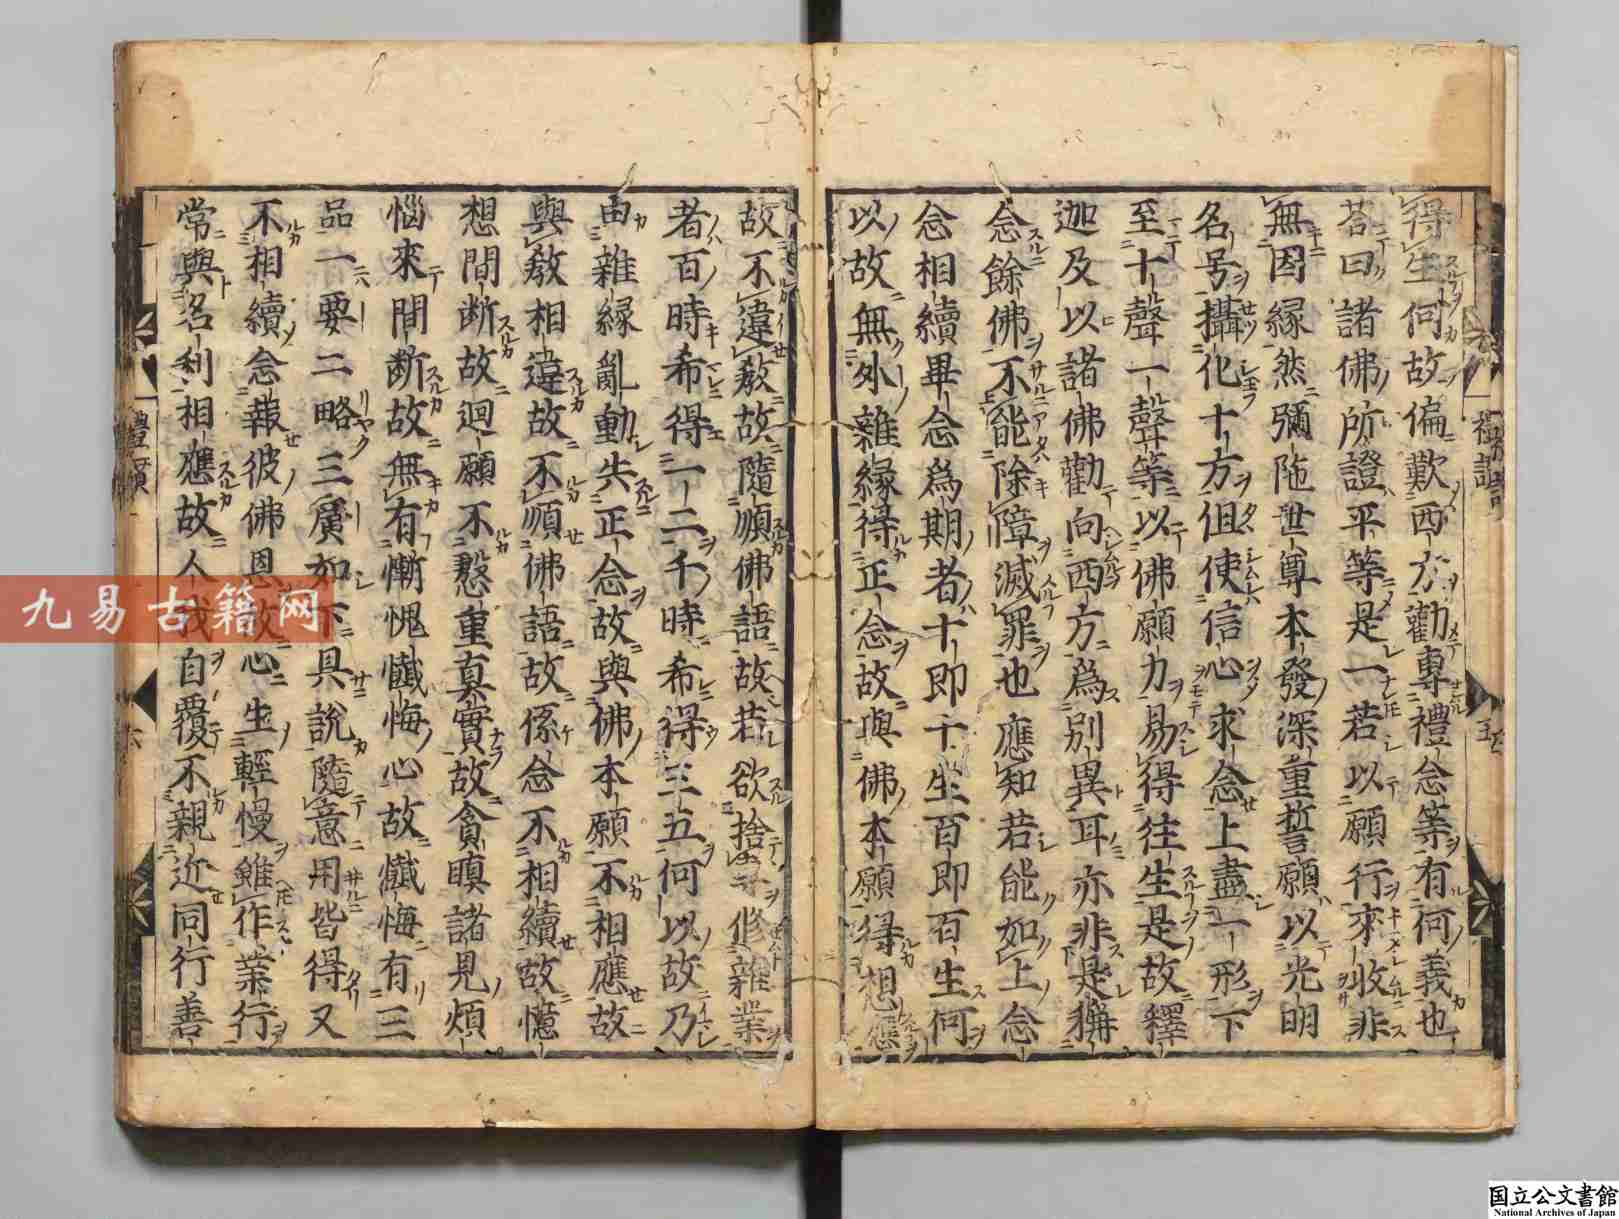 得生何故偏歎西方勸專禮念等有何義也
荅曰諸佛所證平等是一若以願行來收非
無因縁然彌陁世尊本發深重誓願以光明
名号攝化十方但使信心求念上盡一形下
至十聲一聲等以佛願力易得往生是故釋
迦及以諸佛勸向西方爲別異耳亦非是稱
念餘佛不能除障滅罪也應知若能如上念
念相續畢念爲期者十即十生百即百生何
以故無外雜縁得正念故與佛本願得相應
故不違敎故隨順佛語故若欲捨專修雜業
者百時希得一二千時希得三五何以故乃
由雜縁亂動失正念故與佛本願不相應故
與敎相違故不順佛語故係念不相續故憶
想間断故迴願不慇重眞實故貪瞋諸見煩
惱來間断故無有慚愧懺悔心故懺悔有三
品一要二略三廣如下具說隨意用皆得又
不相續念報彼佛恩故心生輕慢雖作業行
常與名利相應故人我自覆不親近同行善
禮讚
五
禮讚
六
九易古籍网
国立公文書館
National Archives of Japan